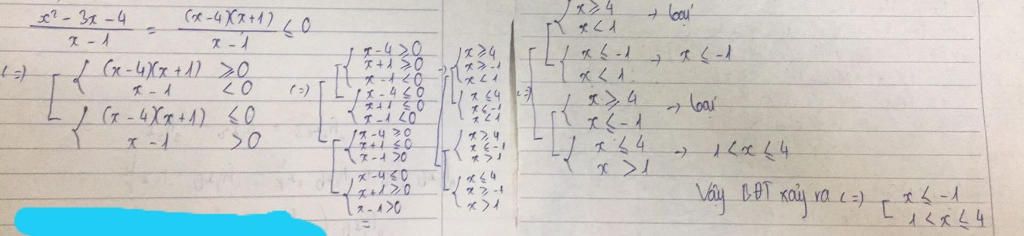 x² - 3x - 4 / x - 1 = (x-4)(x+1) / x - 1 ≤ 0
(=) [ { (x-4)(x+1) ≥ 0
x - 1 < 0
{ (x-4)(x+1) ≤ 0
x - 1 > 0
(=) [ { x-4 ≥ 0
x+1 ≥ 0
x-1 < 0
{ x-4 ≤ 0
x+1 ≤ 0
x-1 < 0
{ x-4 ≥ 0
x+1 ≤ 0
x-1 > 0
{ x-4 ≤ 0
x+1 ≥ 0
x-1 > 0
=
(=) [ { x ≥ 4
x ≥ -1
x < 1
{ x ≤ 4
x ≤ -1
x < 1
{ x ≥ 4
x ≤ -1
x > 1
{ x ≤ 4
x ≥ -1
x > 1
(=) [ { x ≥ 4
x < 1 → loại
{ x ≤ -1
x < 1 → x ≤ -1
{ x ≥ 4
x ≤ -1 → loại
{ x ≤ 4
x > 1 → 1 < x ≤ 4
Vậy BĐT xảy ra (=) [ x ≤ -1
1 < x ≤ 4